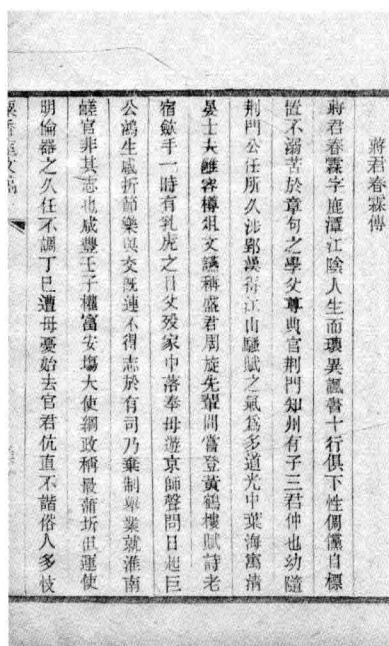 蔣君春霖傳
蔣君春霖字鹿潭江陰人生而瓌異諷書十行俱下性倜儻自標
置不溺苦於章句之學父尊典官荆門知州有子三君仲也幼隨
荆門公任所久涉鄂漢得江山騷賦之氣爲多道光中葉海寓清
晏士大雝容樽俎文讌稱盛君周旋先輩間嘗登黃鶴樓賦詩老
宿斂手一時有乳虎之目父歿家中落奉母遊京師聲問日起巨
公鴻生咸折節樂與交既連不得志於有司乃棄制舉業就淮南
鹺官非其志也咸豐壬子權富安塲大使綱政稱最蒲圻但運使
明倫器之久任不調丁巳遭母憂始去官君伉直不諧俗人多忮